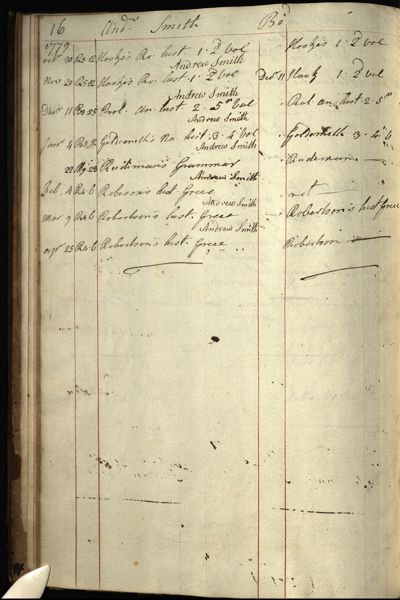 16 Andw. Smith Bd.
1779
Oct 30 R5 12 Hooke's Ro. hist. 1. 2 vol Hooke's 1. 2 vol
Andrew Smith
Nov 20 R5 12 Hooke's Ro. hist. 1. 2 vol Decr 11 Hook 1. 2 vol
Andrew Smith
11 an. hist 2. 5th vol an. hist. 2. 5th
Andrew Smith
Janr 4 Goldsmith's Na. hist. 3. 4 vol Goldsmith 3. 4
Andrew Smith
22 23 Rudiman's Grammar Rudeman
Andrew Smith
Feb. 4 R4 6 Robison's hist. Greece ret
Andrew Smith
Mar 9 R4 6 Robertson's hist. Greece Robertson's hist Greece
Andrew Smith
apr 25 R4 6 Robertson's hist. Greece Robertson